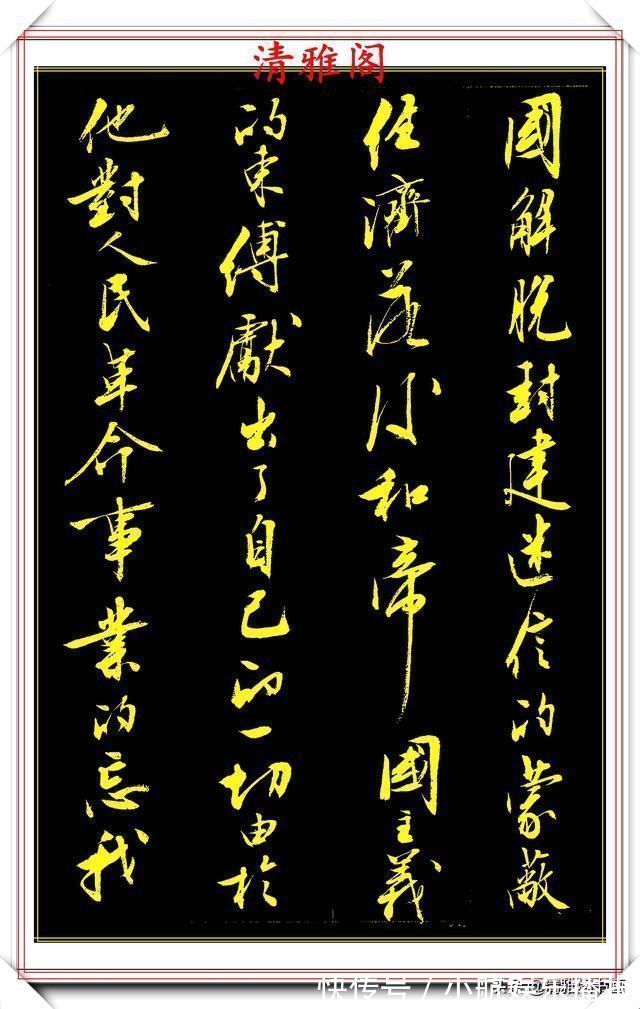 清雅阁
國解脫封建迷信的蒙蔽
經濟落後和帝國主義
的束縛獻出了自己的一切由於
他對人民革命事業的忘我
快传号 / 小鹏娱乐播